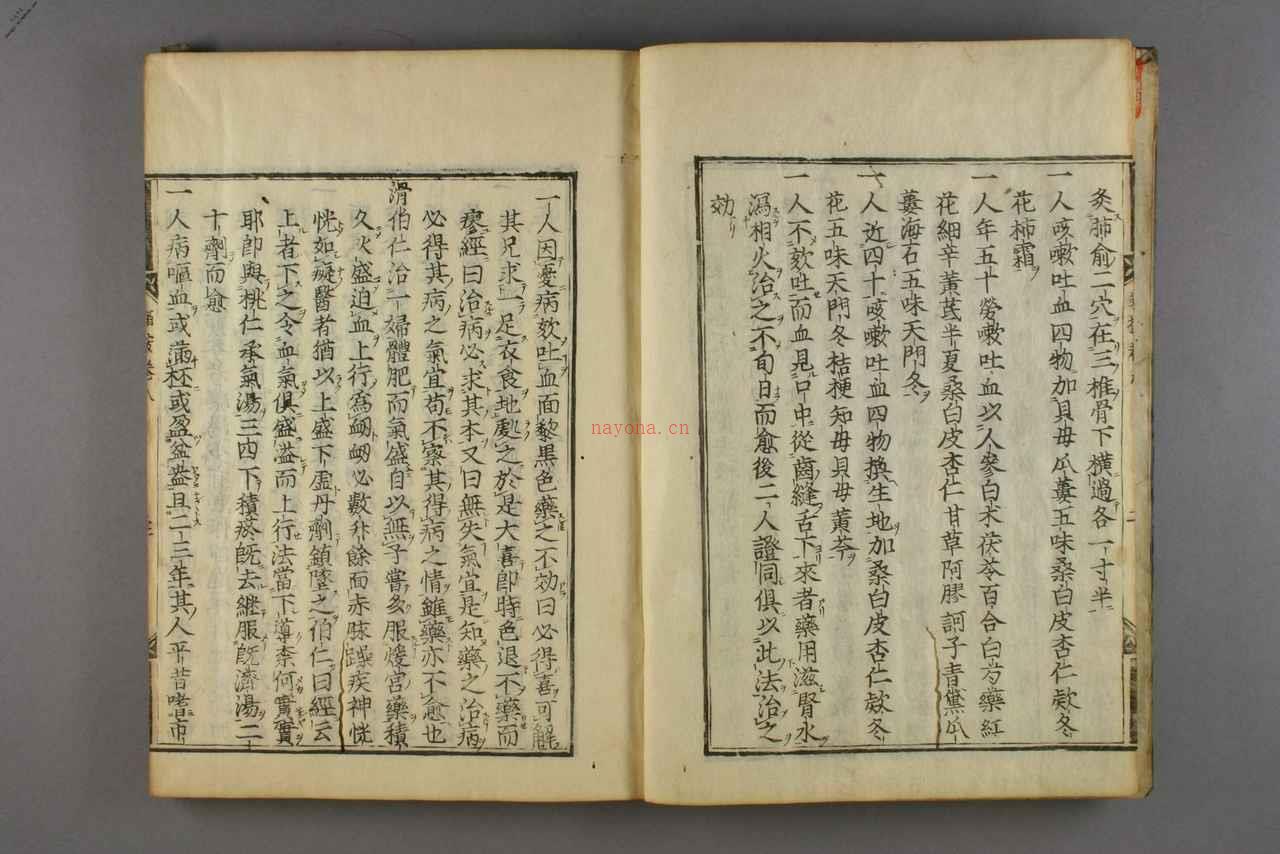 灸肺俞二穴在三椎骨下橫過各一寸半
一人咳嗽吐血四物加貝母瓜蔞五味桑白皮杏仁欸冬
花柿霜
一人年五十勞嗽吐血以人參白朮茯苓百合白芍藥紅
花細辛黃芪半夏桑白皮杏仁甘草阿膠訶子青黛瓜
蔞海石五味天門冬
一人近四十咳嗽吐血四物換生地加桑白皮杏仁欸冬
花五味天門冬桔梗知母貝母黃芩
一人不欬吐而血見口中從齒縫舌下來者藥用滋腎水
瀉相火治之不旬日而愈後二人證同俱以此法治之
効
一人因憂病欬吐血面黎黑色藥之不効曰必得喜可解
其兄求一足衣食地處之於是大喜即時色退不藥而
瘳經曰治病必求其本又曰無失氣宜是知藥之治病
必得其病之氣宜苟不察其得病之情雖藥亦不愈也
滑伯仁治一婦體肥而氣盛自以無子嘗多服煖宮藥積
久火盛迫血上行為衂衂必數升餘面赤脉躁疾神恍
恍如癡醫者猶以上盛下虛丹劑鎮墜之伯仁曰經云
上者下之今血氣俱盛溢而上行法當下導柰何實實
耶即與桃仁承氣湯三四下積瘀既去継服既濟湯二
十劑而愈
一人病嘔血或滿杯或盈盆盎且二三年其人平昔嗜市
nayona.cn